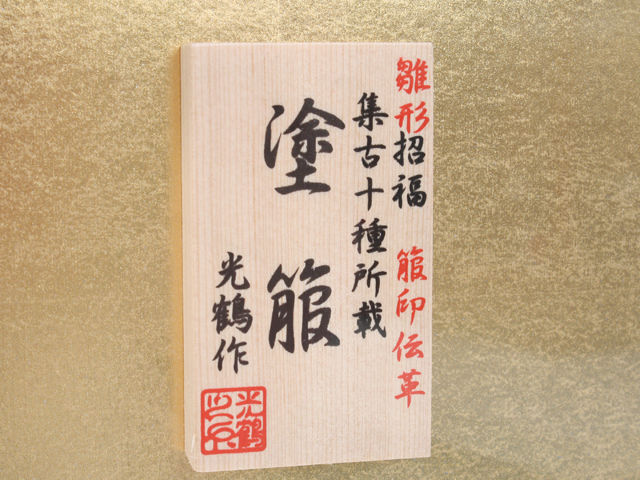 雛形招福 箙印伝革
集古十種所載
塗箙
光鶴作
光鶴